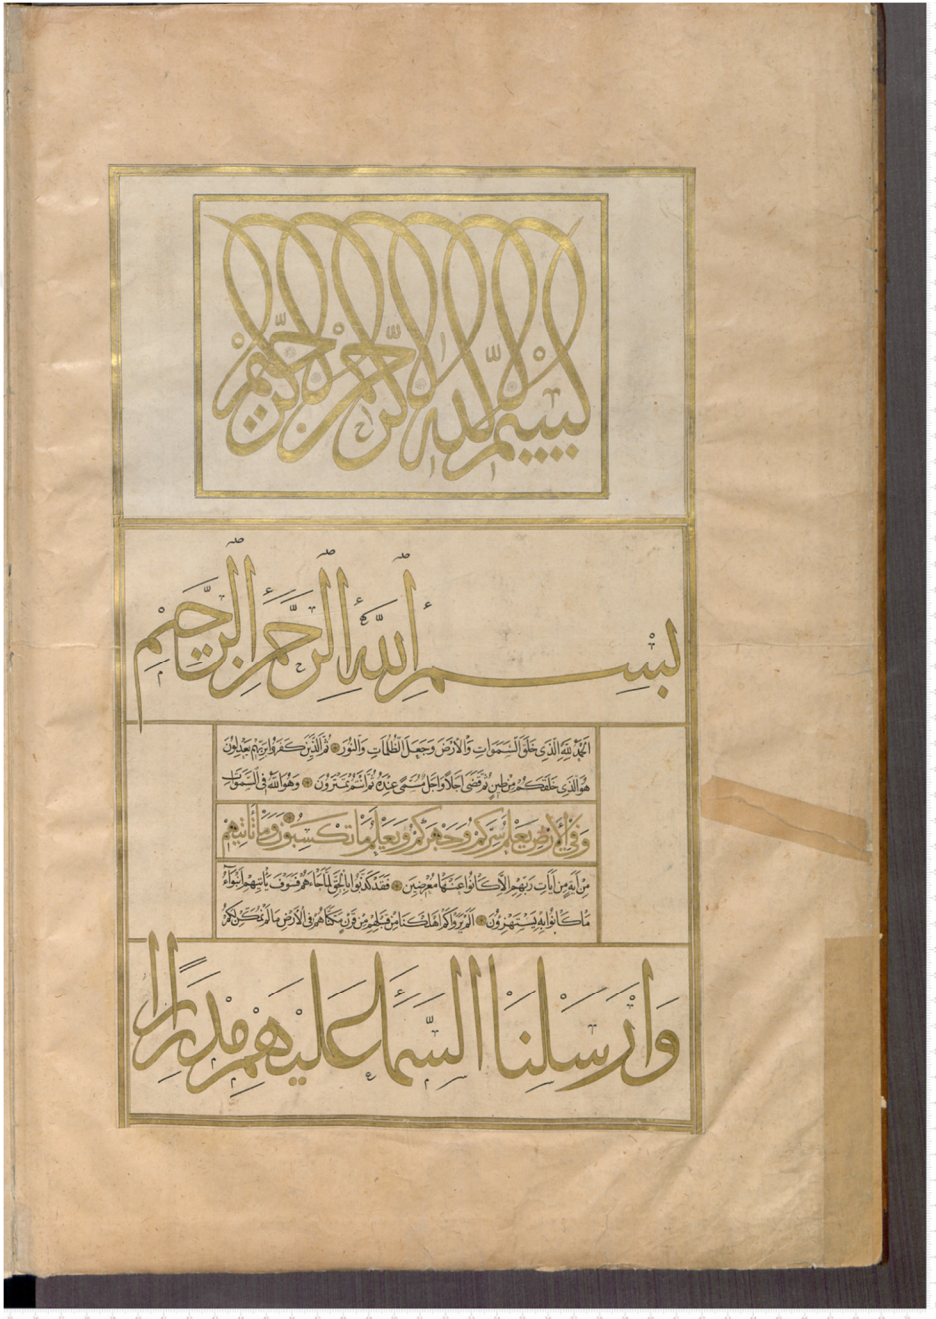 بسم الله الرحمن الرحيم
بِسْمِ اللَّهِ الرَّحْمَنِ الرَّحِيمِ
اَلْحَمْدُ لِلَّهِ الَّذِى خَلَقَ السَّمَوَاتِ وَالْاَرْضَ وَجَعَلَ الظُّلُمَاتِ وَالنُّورَ ثُمَّ الَّذِينَ كَفَرُوا بِرَبِّهِمْ يَعْدِلُونَ
هُوَ الَّذِى خَلَقَكُمْ مِنْ طِينٍ ثُمَّ قَضَى اَجَلًا وَاَجَلٌ مُسَمًّى عِنْدَهُ ثُمَّ اَنْتُمْ تَمْتَرُونَ وَهُوَ اللَّهُ فِى السَّمَوَاتِ
وَفِى الْاَرْضِ يَعْلَمُ سِرَّكُمْ وَجَهْرَكُمْ وَيَعْلَمُ مَا تَكْسِبُونَ وَمَا تَاْتِيهِمْ
مِنْ اَيَةٍ مِنْ اَيَاتِ رَبِّهِمْ اِلَّا كَانُوا عَنْهَا مُعْرِضِينَ فَقَدْ كَذَّبُوا بِالْحَقِّ لَمَّا جَاءَهُمْ فَسَوْفَ يَاْتِيهِمْ اَنْبَؤُا
مَا كَانُوا بِهِ يَسْتَهْزِؤُنَ اَلَمْ يَرَوْا كَمْ اَهْلَكْنَا مِنْ قَبْلِهِمْ مِنْ قَرْنٍ مَكَّنَّاهُمْ فِى الْاَرْضِ مَا لَمْ نُمَكِّنْ لَكُمْ
وَاَرْسَلْنَا السَّمَاءَ عَلَيْهِمْ مِدْرَارًا